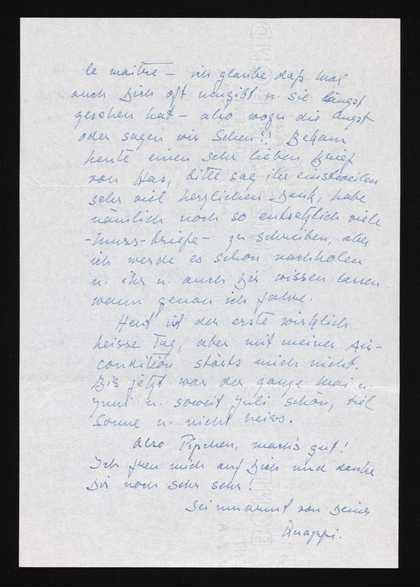 le maitre – ich glaube daß Mae
auch Dich oft und sie längst
gesehen hat – also wozu die Angst
oder sagen wir Scheu!! Bekam
heute einen sehr lieben Brief
von , bitte sag ihr einstweilen
sehr viel herzlichen Dank, habe
nämlich noch so entsetzlich viele
-muss-Briefe- zu schreiben, aber
ich werde es schon nachholen
u. ihr u. auch Dir wissen lassen
wann genau ich fahre.
Heut ist der erste wirklich
heisse Tag, aber mit meiner Air-
condition störts mich nicht.
Bis jetzt war der ganze Mai u.
Juni u. soweit Juli schön, viel
Sonne u. nicht heiss.
Also Pipchen, mach's gut!
Ich freu mich auf Dich und danke
Dir noch sehr sehr!
Sei umarmt von Deiner